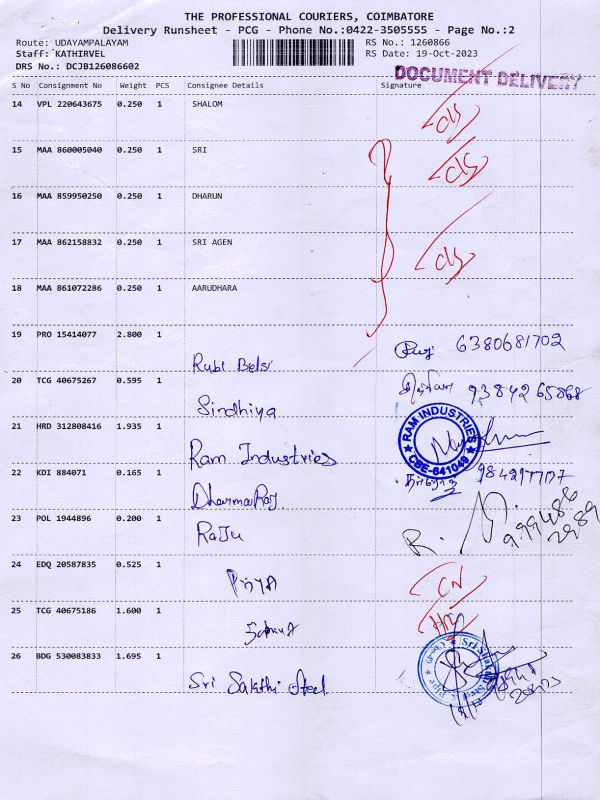 THE PROFESSIONAL COURIERS, COIMBATORE
Delivery Runsheet - PCG - Phone No.:0422-3505555 - Page No.:2
Route: UDAYAMPALAYAM RS No.: 1260866
Staff: KATHIRVEL RS Date: 19-Oct-2023
DRS No.: DCJB126086602
DOCUMENT DELIVERY
S No Consignment No Weight PCS Consignee Details Signature
14 VPL 220643675 0.250 1 SHALOM
15 MAA 860005040 0.250 1 SRI
16 MAA 859950250 0.250 1 DHARUN
17 MAA 862158832 0.250 1 SRI AGEN
18 MAA 861072286 0.250 1 AARUDHARA
19 PRO 15414077 2.800 1
Rubi Bels 6380681702
20 TCG 40675267 0.595 1
Sindhiya 9384265868
21 HRD 312808416 1.935 1
RAM INDUSTRIES
CBE-641049
Ram Industries
22 KDI 884071 0.165 1
DharmaRaj
23 POL 1944896 0.200 1
Raju R.
24 EDQ 20587835 0.525 1
Priya CN
25 TCG 40675186 1.600 1
26 BDG 530083833 1.695 1
Sri Sakthi Steel